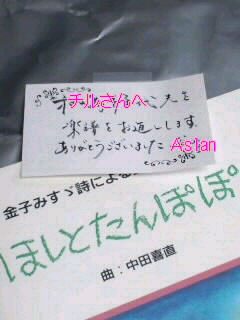 チルさんへ
楽譜をお返しします。
ありがとうございました
Asian
金子みすゞ詩による
ほしとたんぽぽ
曲:中田喜直